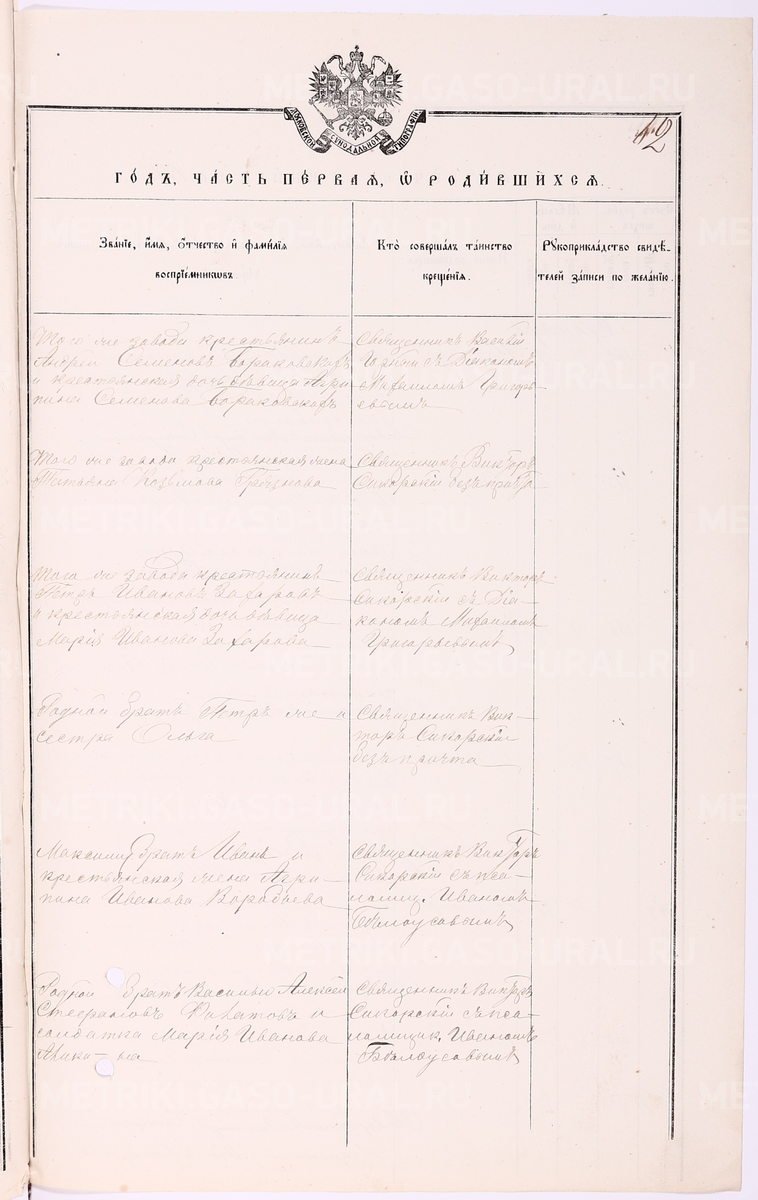 METRIKI.GASO-URAL.RU
МОСКОВСКОЙ СѴНОДАЛЬНОЙ ТИПОГРАФІИ
42
ГО́ДЪ, ЧА́СТЬ ПЕ́РВАЯ, Ѡ РОДИ́ВШИХСЯ.
Зва́нїе, и҆́мя, ѻ҆́тчество и҆ фами́лїя
воспрїе́мникѡвъ.
Кто̀ соверша́лъ та́инство
креще́нїя.
Рꙋкоприкла́дство свидѣ́-
телей за́писи по жела́нїю.
Того же завода крестьянинъ
Андрей Семеновъ
и крестьянская дочь девица Агри
пина Семенова
Священникъ Василій
съ Діакономъ
Михаиломъ Григорь
евымъ
Того же завода крестьянская жена
Татьяна Козьмова
Священникъ Викторъ
Сикорскій безъ причта
Того же завода крестьянинъ
Петръ Ивановъ Захаровъ
и крестьянская дочь девица
Марія Иванова Захарова
Священникъ Викторъ
Сикорскій съ Діа
кономъ Михаиломъ
Григорьевымъ
Родной братъ Петръ же и
сестра Ольга
Священникъ Вик-
торъ Сикорскій
безъ причта
братъ Иванъ и
крестьянская жена Агри-
пина Иванова Воробьева
Священникъ Викторъ
Сикорскій съ пса-
ломщ. Иваномъ
Белоусовымъ
Родной братъ Василью Алексей
Стефановъ и
солдатка Марія Иванова
Священникъ Викторъ
Сикорскій съ пса
ломщик. Иваномъ
Белоусовымъ